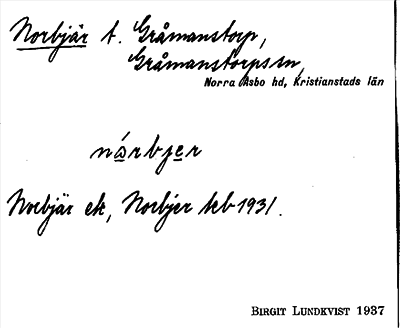 Norbjär t. Gråmanstorp,
Gråmanstorps sn,
Norra Åsbo hd, Kristianstads län
nárbjer
Norbjär ek, Norbjer kb 1931.
BIRGIT LUNDKVIST 1937